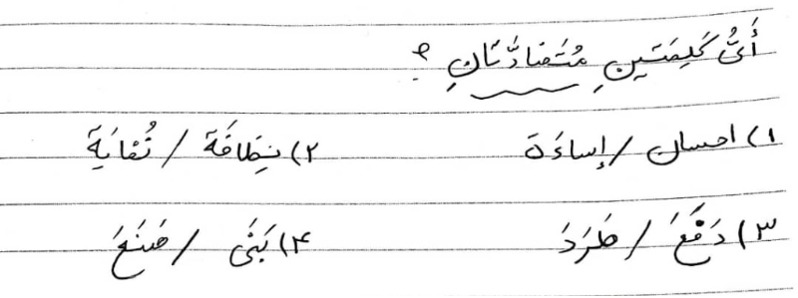 أَيُّ كَلِمَتَينِ مُتَضادَّتَانِ ؟
۱) احسان / إِساءَة ۲) نِظافَة / نُفايَة
۳) دَفَعَ / طَرَدَ ۴) بَنَى / صَنَعَ